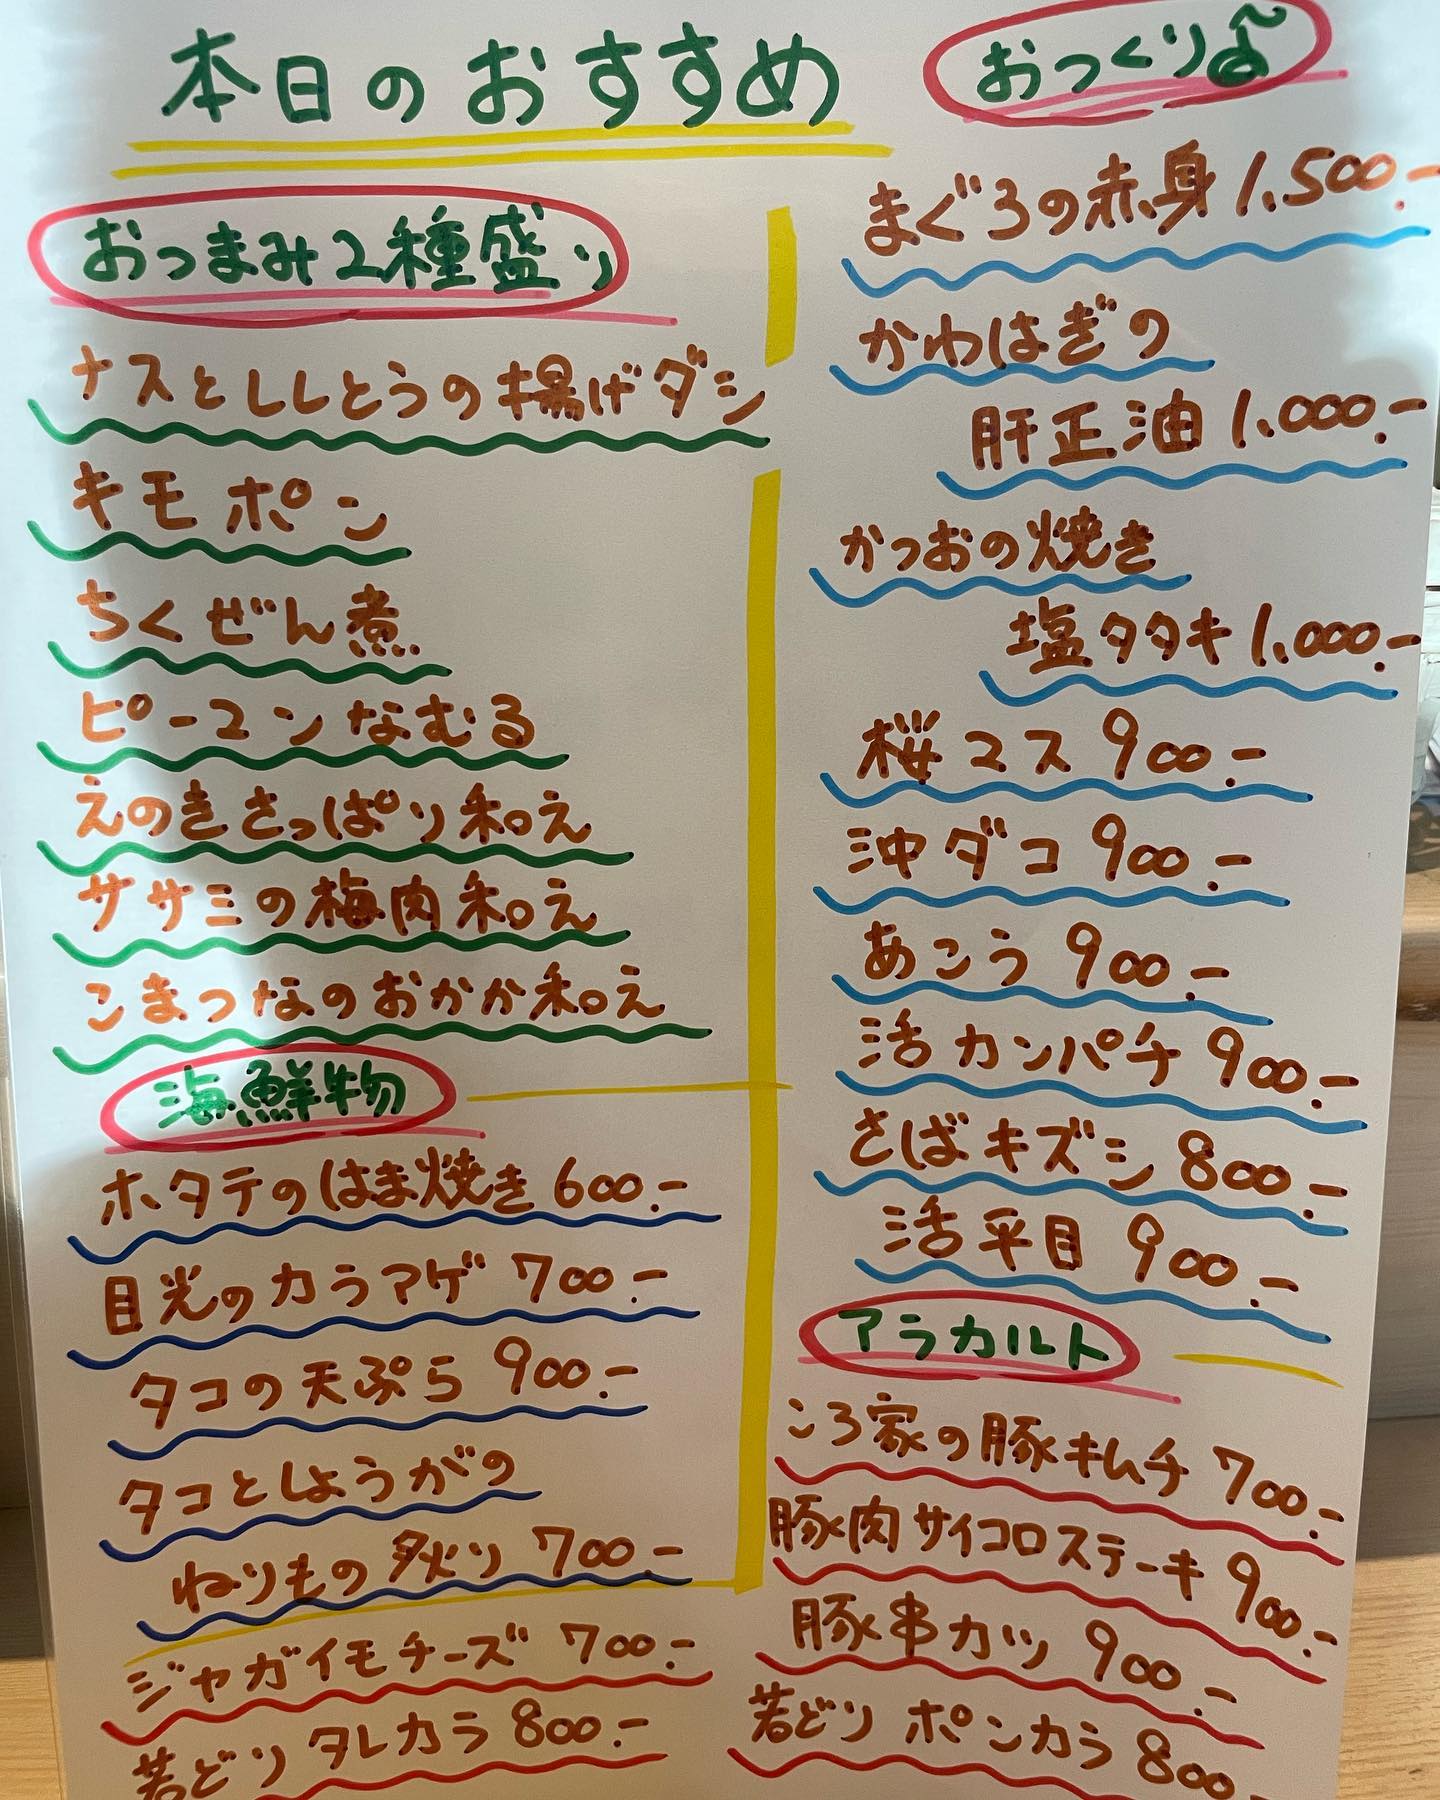 本日のおすすめ
おつまみ2種盛り
ナスとししとうの揚げダシ
キモポン
ちくぜん煮
ピーマンなむる
えのきさっぱり和え
ササミの梅肉和え
こまつなのおかか和え
海鮮物
ホタテのはま焼き 600.-
目光のカラアゲ 700.-
タコの天ぷら 900.-
タコとしょうがの
ねりもの炙り 700.-
ジャガイモチーズ 700.-
若どりタレカラ 800.-
おつくり
まぐろの赤身 1,500.-
かわはぎの
肝正油 1.000.-
かつおの焼き
塩タタキ 1.000.-
桜マス 900.-
沖ダコ 900.-
あこう 900.-
活カンパチ 900.-
さばキズシ 800.-
活平目 900.-
アラカルト
ころ家の豚キムチ 700.-
豚肉サイコロステーキ 900.-
豚串カツ 900.-
若どりポンカラ 800.-